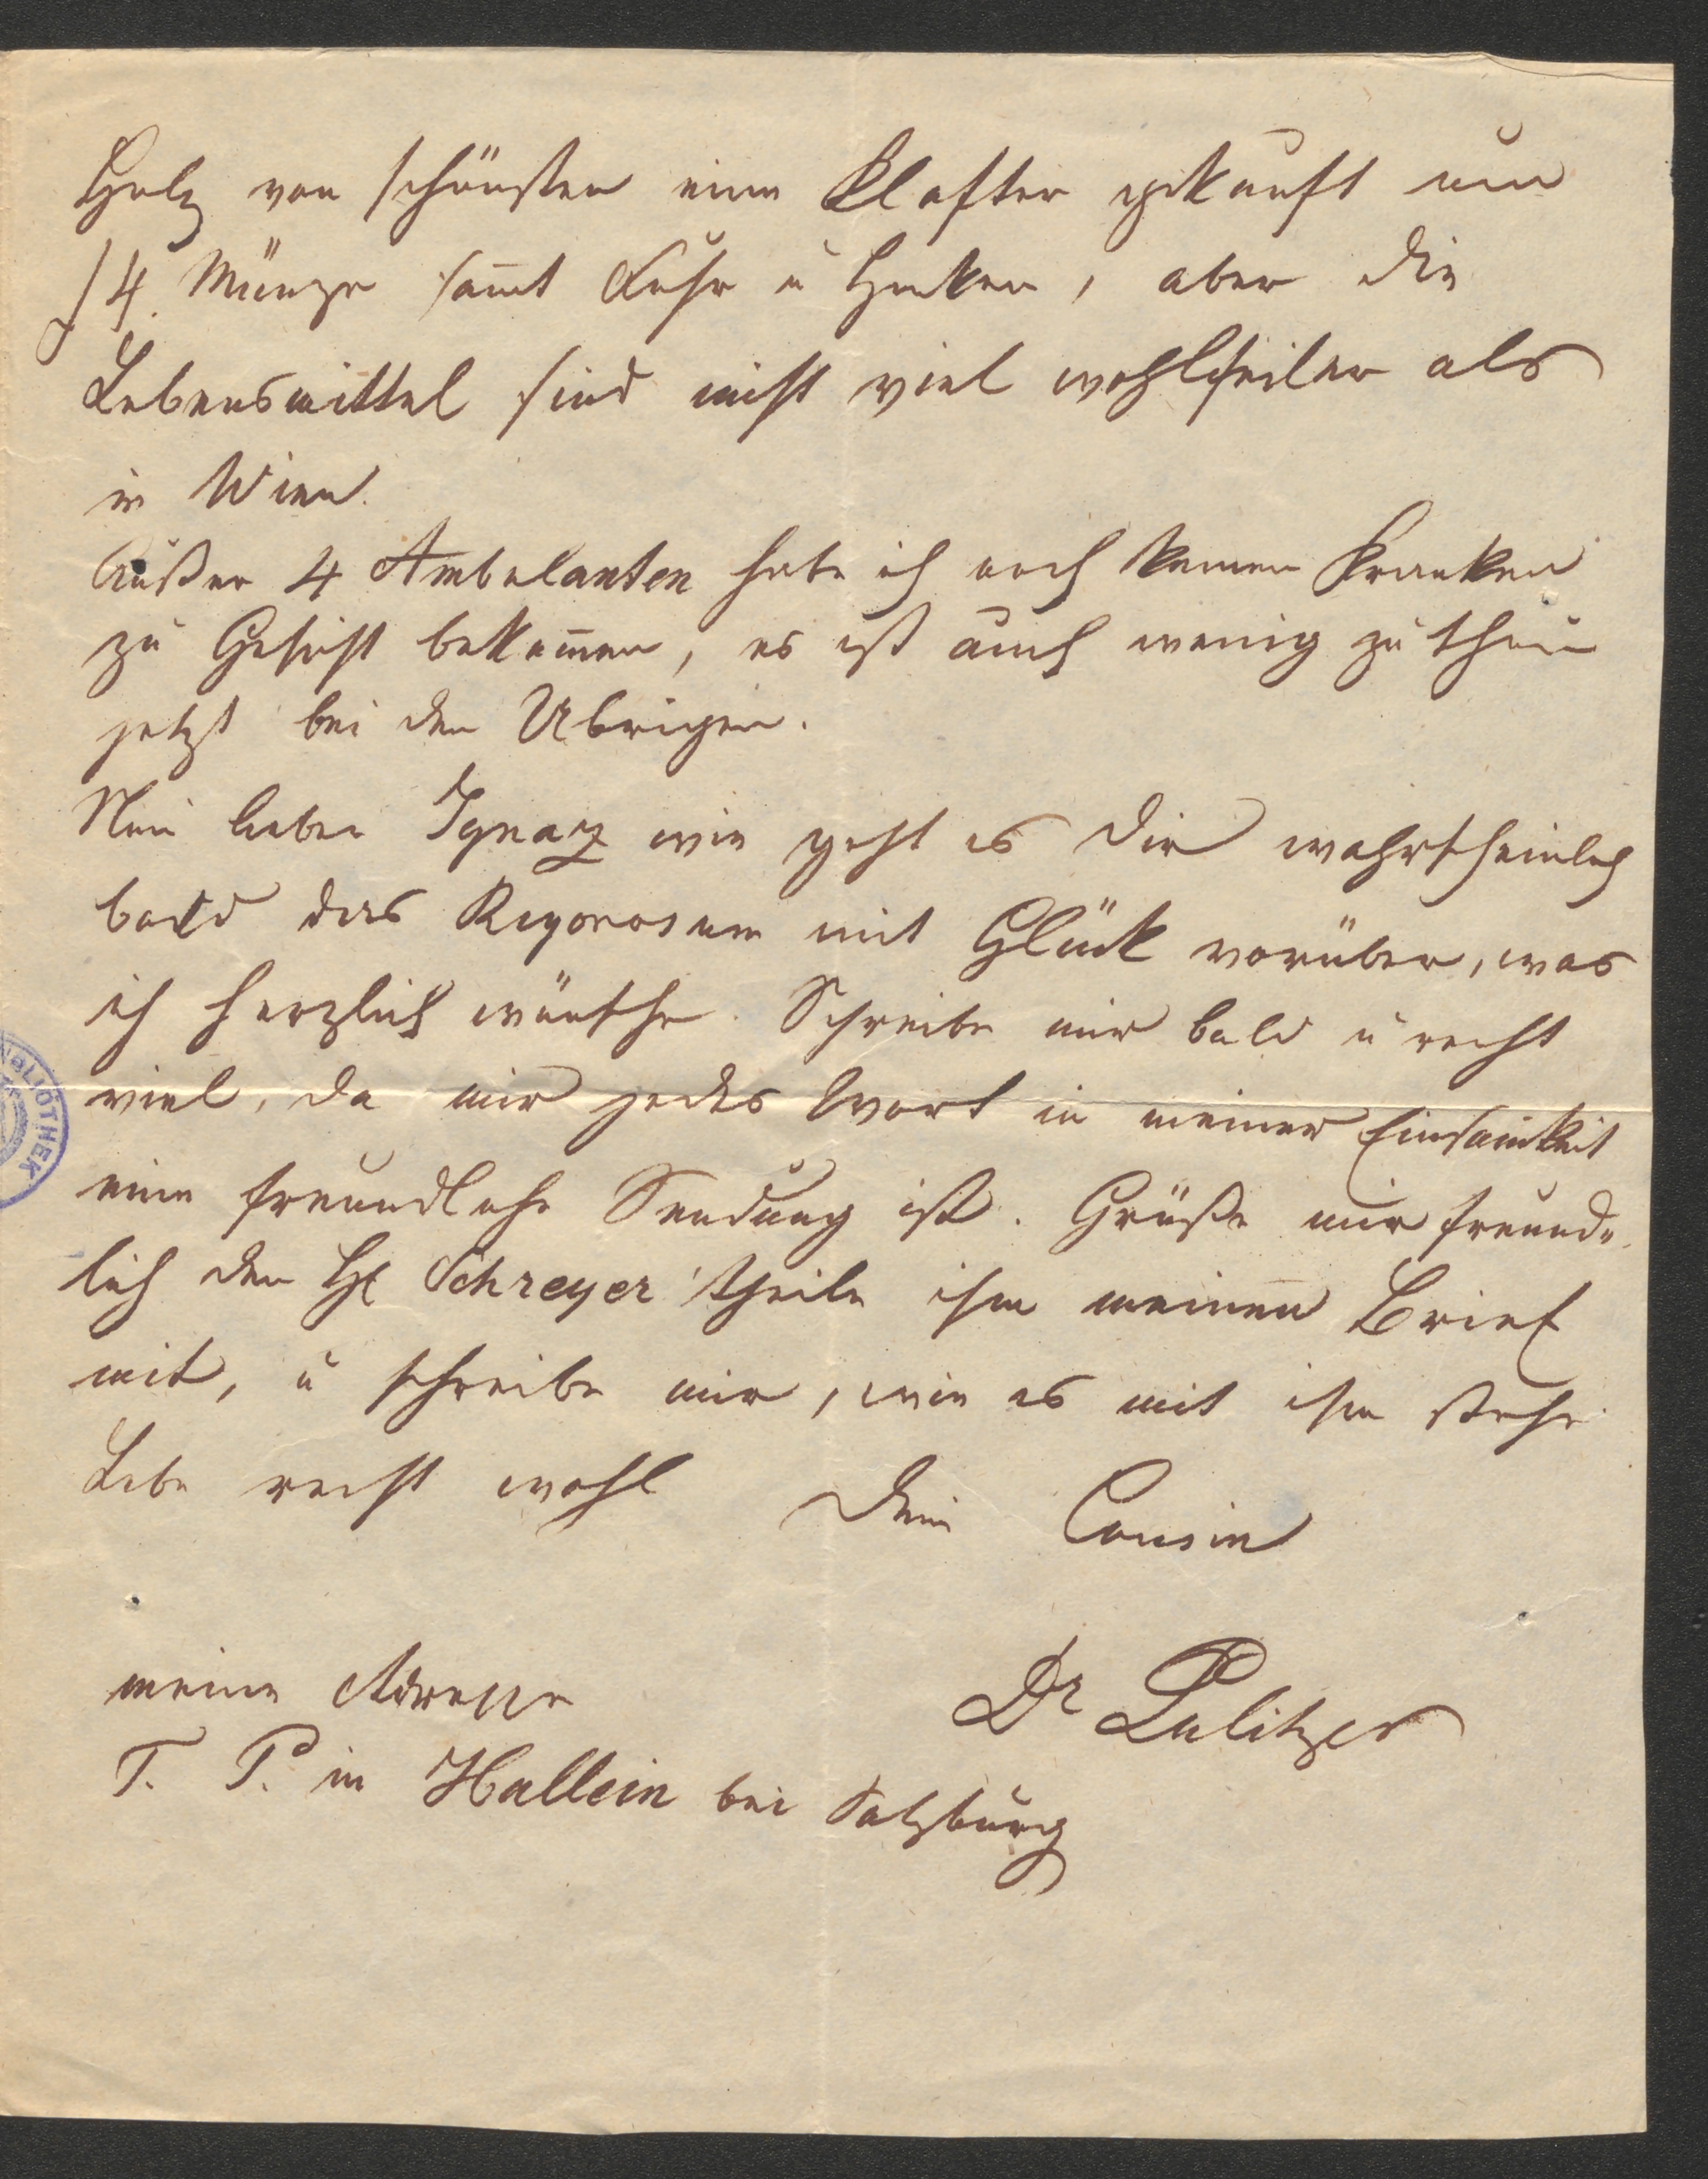 Holz von schönsten eine Klafter gekauft um
f 4. Münze sam̅t Fuhr u Hacken, aber die
Lebensmittel sind nicht viel wohlfeiler als
in Wien.
Außer 4 Ambulanten habe ich noch keinen Kranken
zu Gesicht bekom̅en, es ist auch wenig zu thun
jetzt bei den Ubrigen.
Nun lieber Ignaz wie geht es Dir wahrscheinlich
bald das Rigorosum mit Glück vorüber, was
ich herzlich wünsche. Schreibe mir bald u recht
viel, da mir jedes Wort in meiner Einsamkeit
eine freundliche Sendung ist. Grüße mir freund-
lich den H Schreyer theile ihm meinen Brief
mit, u schreibe mir, wie es mit ihm stehe
Lebe recht wohl Dein Cousin
meine Adresse Dr Pulitzer
T. P. in Hallein bei Salzburg
BLIOTHEK